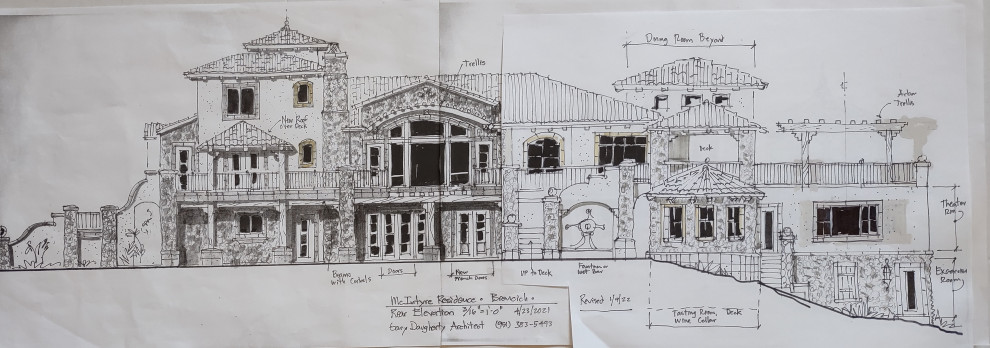 Dining Room Beyond
Trellis
Arbor
Trellis
New Roof
over Deck
Deck
Theater
Rm
Beams
with Corbels
Doors
New
French Doors
Up to Deck
Fountain or
Wet Bar
Room
McIntyre Residence •
Rear Elevation 3/16"=1'-0" 4/23/2021
Gary Daugherty Architect (951) 383-5493
Revised 1/9/22
Tasting Room, Deck
Wine Cellar